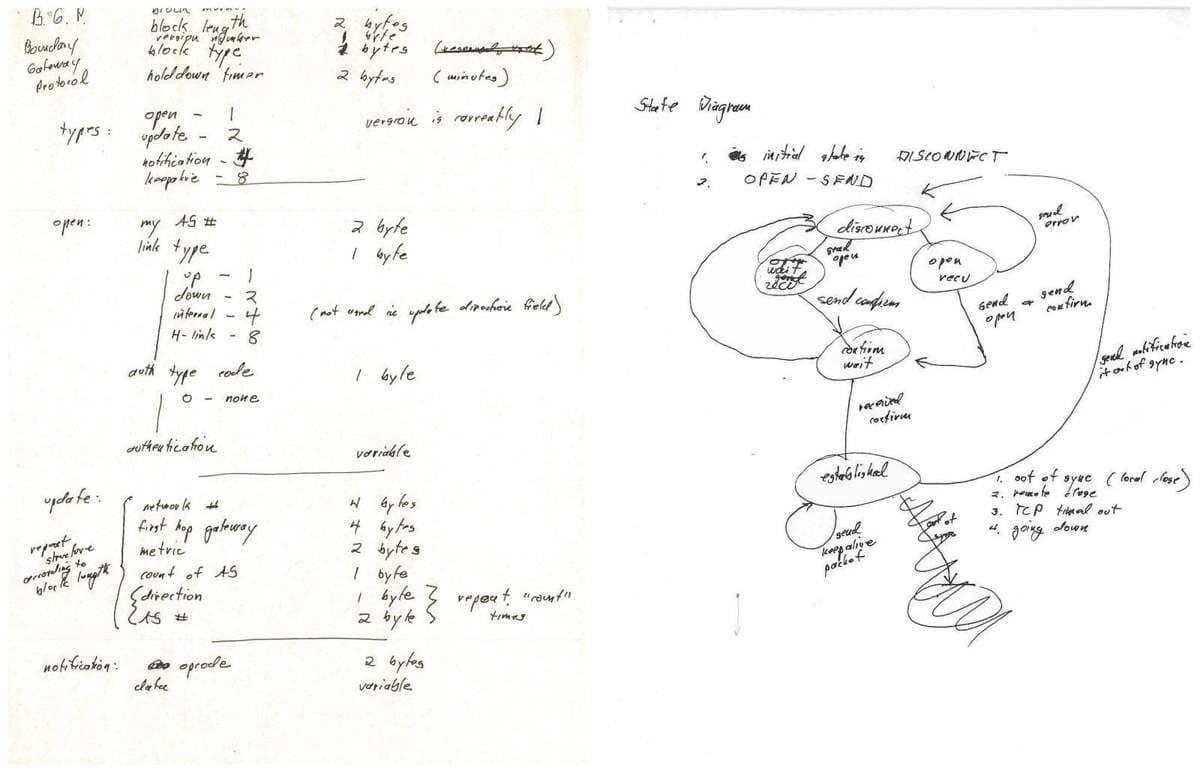 B.G.P
Boundary
Gateway
Protocol
block length 2 bytes
version number 1 byte
block type bytes
holddown timer 2 bytes (minutes)
types:
open - 1
update - 2
notification - 4
keepalive - 8
version is currently 1
open: my AS # 2 byte
link type 1 byte
up - 1
down - 2
internal - 4 (not used in update direction field)
H-link - 8
auth type code 1 byte
0 - none
authentication variable
update:
repeat
structure
according to
block length
network # 4 bytes
first hop gateway 4 bytes
metric 2 bytes
count of AS 1 byte
direction 1 byte
AS # 2 byte
repeat "count"
times
notification: opcode 2 bytes
data variable
State Diagram
1. initial state is DISCONNECT
2. OPEN - SEND
disconnect
send
error
send
open
wait
recv
open
recv
send confirm
send or send
open confirm
confirm
wait
send notification
if out of sync.
received
confirm
established
1. out of sync (local close)
2. remote close
3. TCP timed out
4. going down
out of
sync
send
keepalive
packet